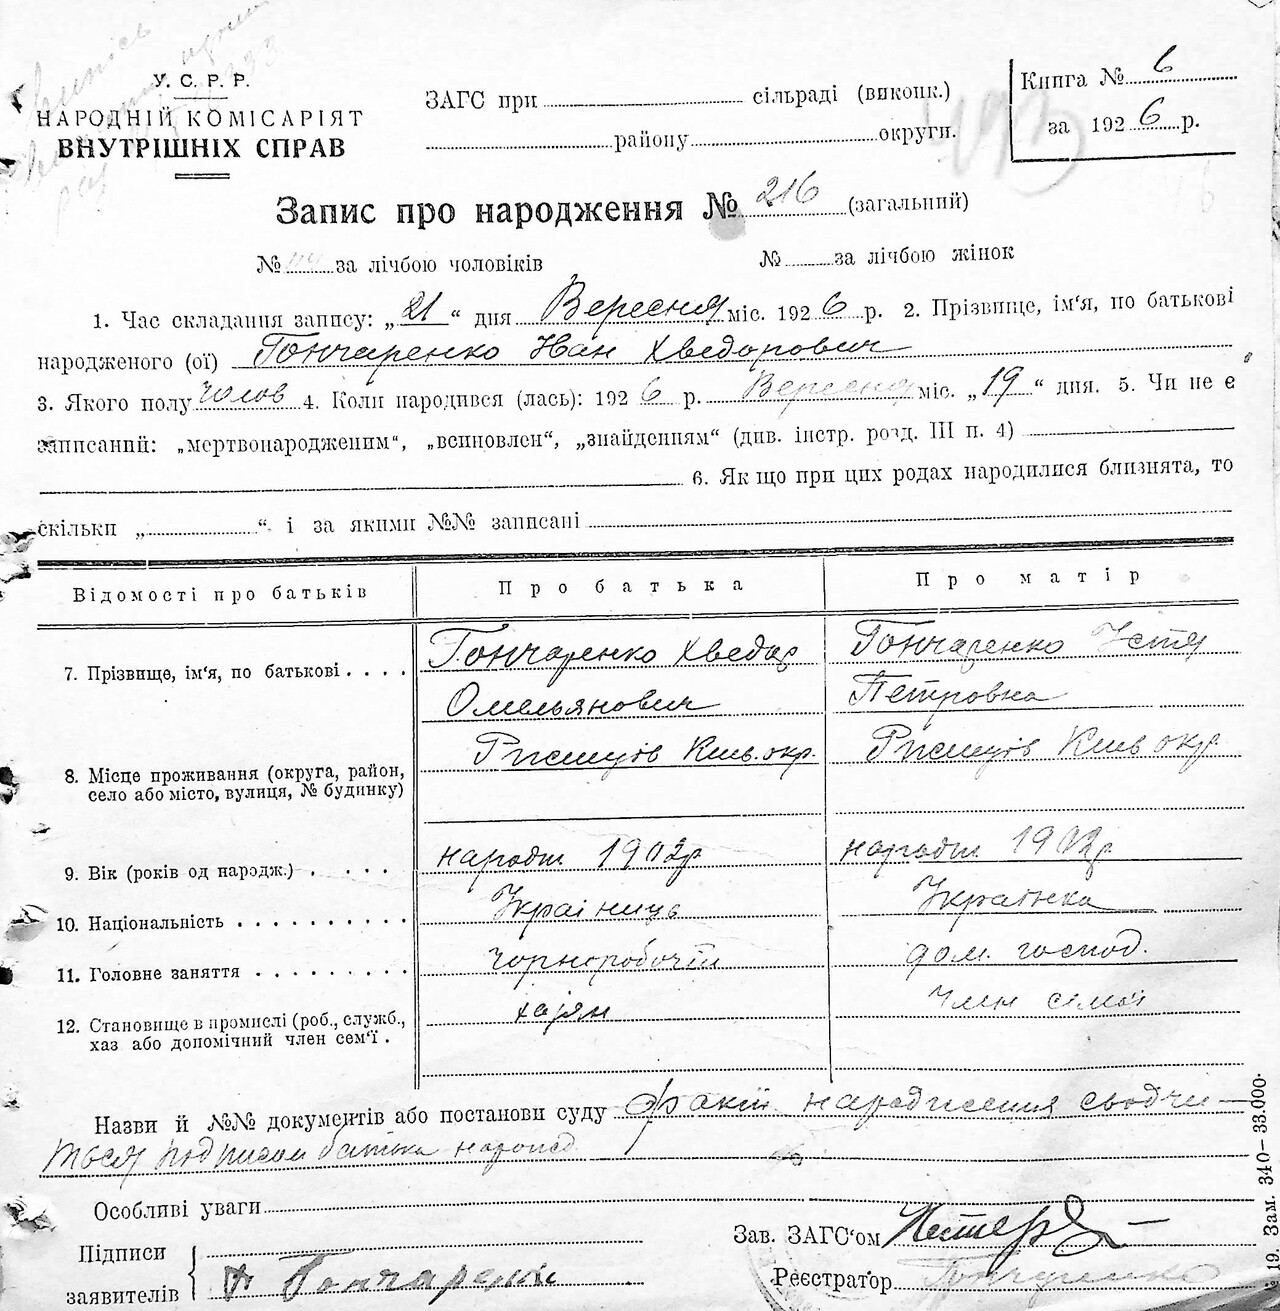 У. С. Р. Р.
НАРОДНІЙ КОМІСАРІЯТ
ВНУТРІШНІХ СПРАВ
ЗАГС при сільраді (виконк.)
району округи.
Книга № 6
за 1926 р.
493
Запис про народження № 216 (загальний)
№ за лічбою чоловіків № за лічбою жінок
1. Час складання запису: „21“ дня Вересня міс. 1926 р. 2. Прізвище, ім'я, по батькові
народженого (ої) Гончаренко Иван Хведорович
3. Якого полу чолов 4. Коли народився (лась): 1926 р. Вересня міс. „19“ дня. 5. Чи не є
записаний: „мертвонародженим“, „всиновлен“, „знайденням“ (див. інстр. розд. III п. 4)
6. Як що при цих родах народилися близнята, то
скільки „ “ і за якими №№ записані
Відомості про батьків Про батька Про матір
7. Прізвище, ім'я, по батькові . . . . Гончаренко Хведор Гончаренко Устя
Омельянович Петровна
8. Місце проживання (округа, район, село або місто, вулиця, № будинку) Ржищів Київ. окр. Ржищів Київ окр
9. Вік (років од народж.) . . . . народж 1902р народж 1902р
10. Національність . . . . . . . . . Українець Українка
11. Головне заняття . . . . . . . . . чорноробочій дом. господ.
12. Становище в промислі (роб., служб., хаз або допомічний член сем'ї . член сімої
Назви й №№ документів або постанови суду факт народження сьвідчи-
ться підписом батька народ
Особливі уваги
Підписи
заявителів Гончаренко
Зав. ЗАГС'ом
Реєстратор
19. Зам. 340–33.000.